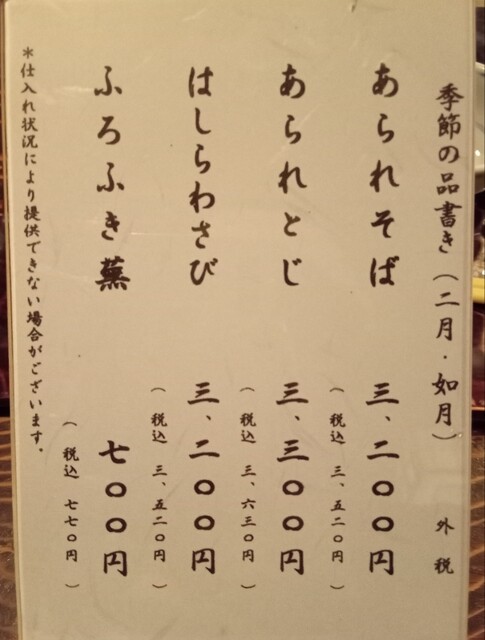 季節の品書き(二月・如月) 外税
あられそば 三、二〇〇円
(税込 三、五二〇円)
あられとじ 三、三〇〇円
(税込 三、六三〇円)
はしらわさび 三、二〇〇円
(税込 三、五二〇円)
ふろふき蕪 七〇〇円
(税込 七七〇円)
*仕入れ状況により提供できない場合がございます。